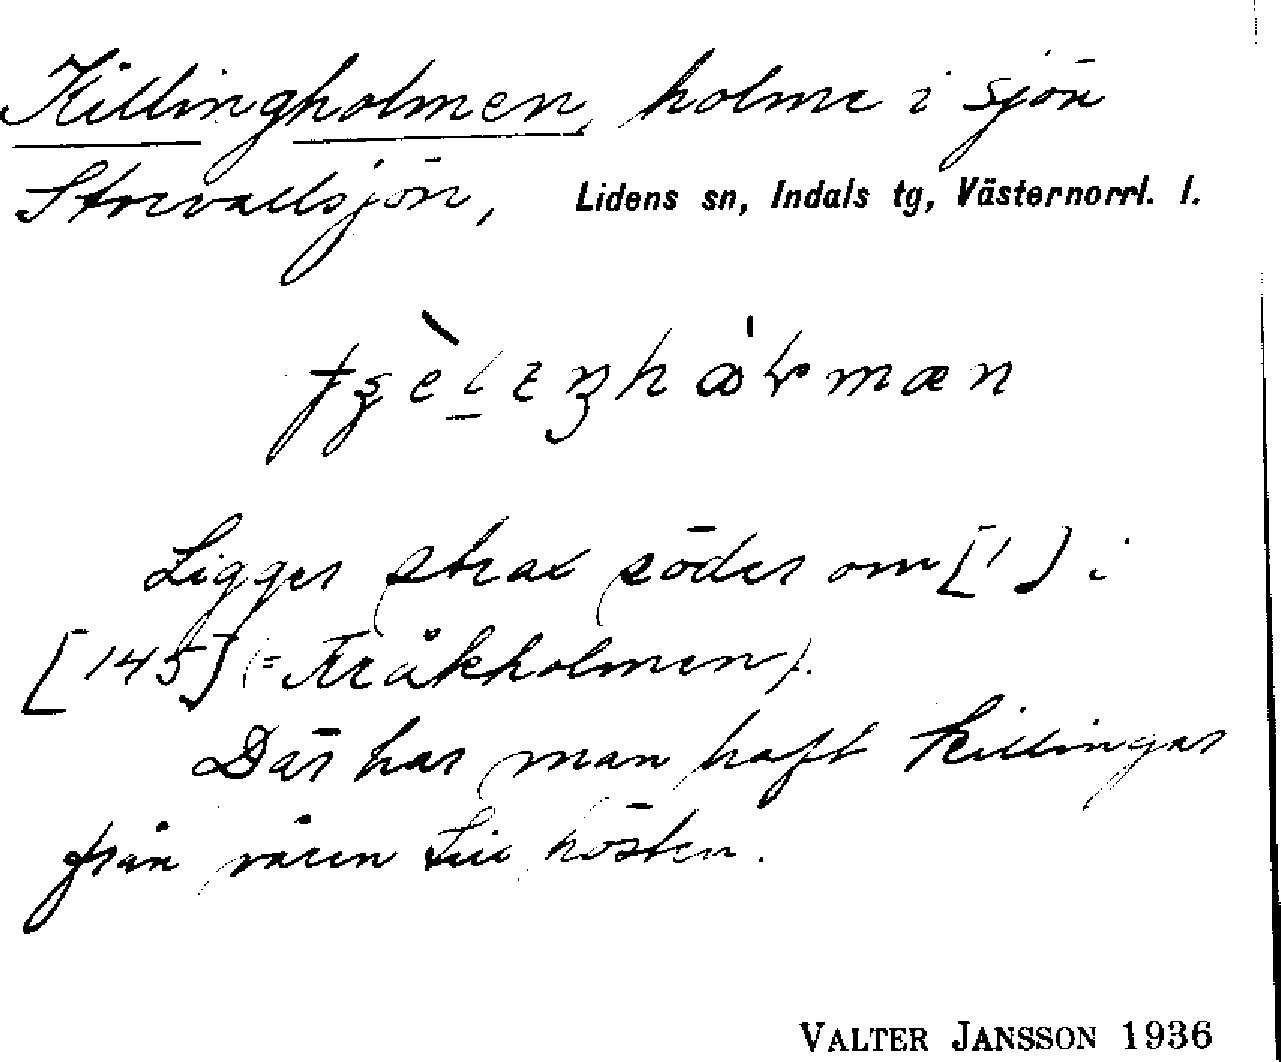 Killingholmen, holme i sjön
Storvallsjön, Lidens sn, Indals tg, Västernorrl. l.
Ligger strax söder om [1] i
[145] (= Kråkholmen).
Där har man haft killingar
från våren till hösten.
VALTER JANSSON 1936